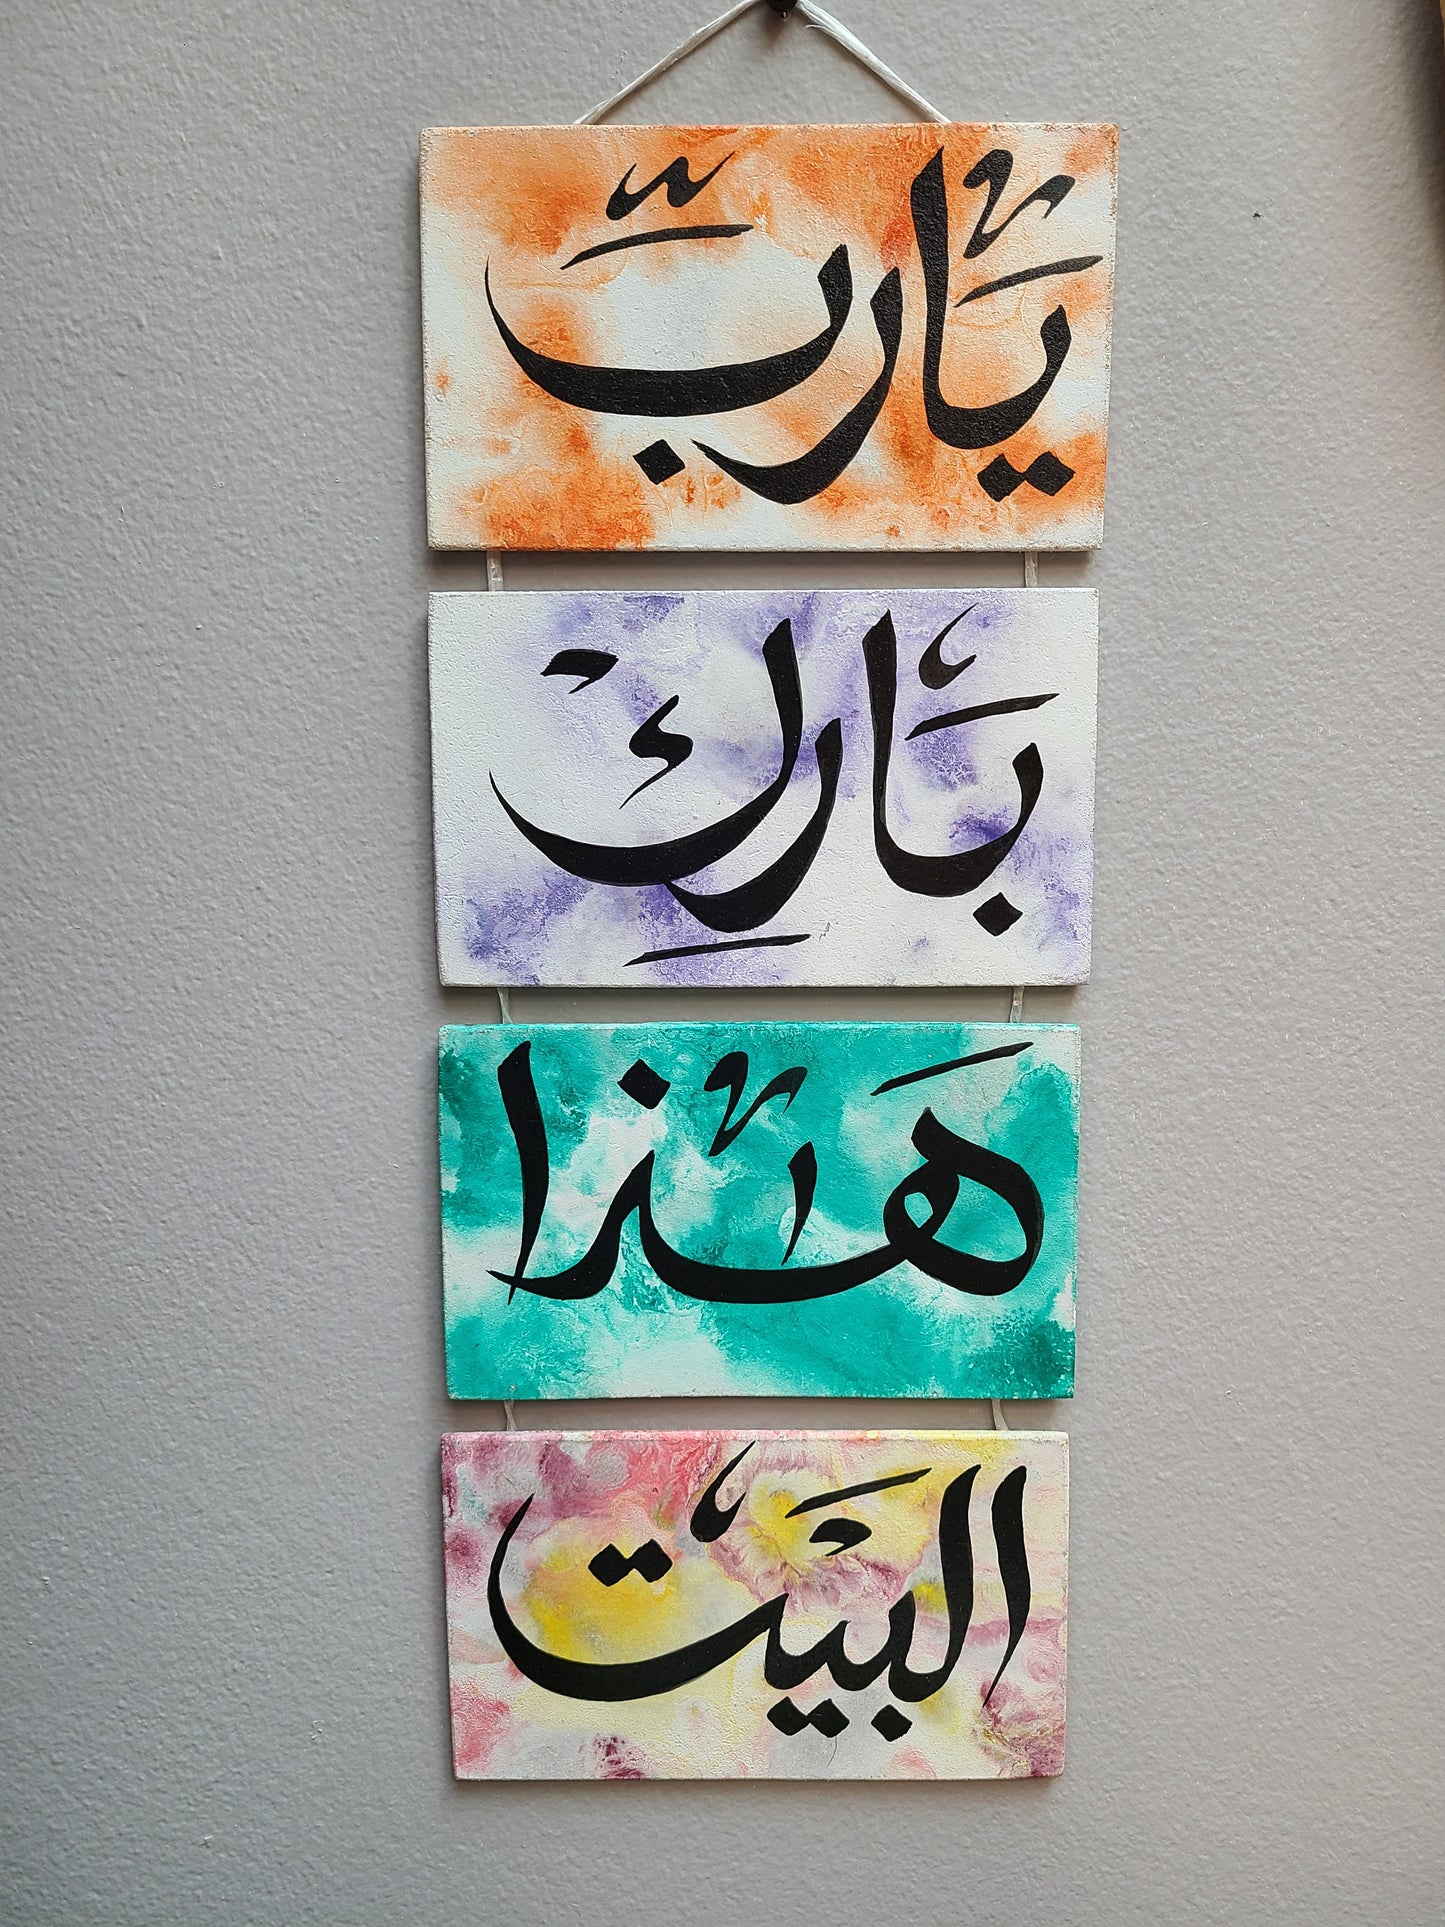 يَا رَبّ
بَارِكْ
هَـٰذَا
البَيْت